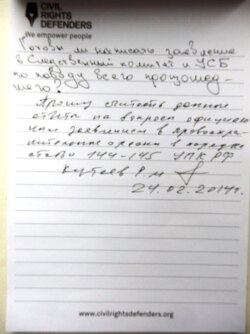 CIVIL
RIGHTS
DEFENDERS
We empower people
Готовы ли написать заявление
в Следственный комитет и УСБ
по поводу всего произошед-
шего?
Прошу считать данные
ответы на вопросы официаль-
ным заявлением в правоохра-
нительные органы в порядке
статьи 144-145 УПК РФ
Кутаев Р.М
24.02.2014г.
www.civilrightsdefenders.org